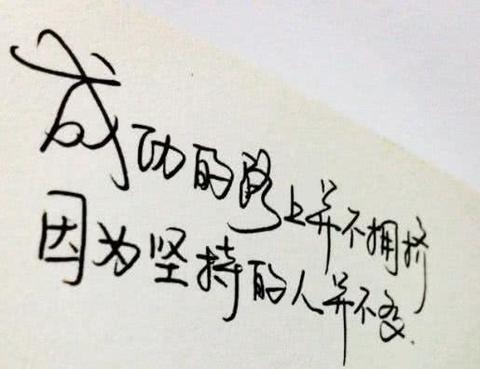 成功的路上并不拥挤
因为坚持的人并不多.